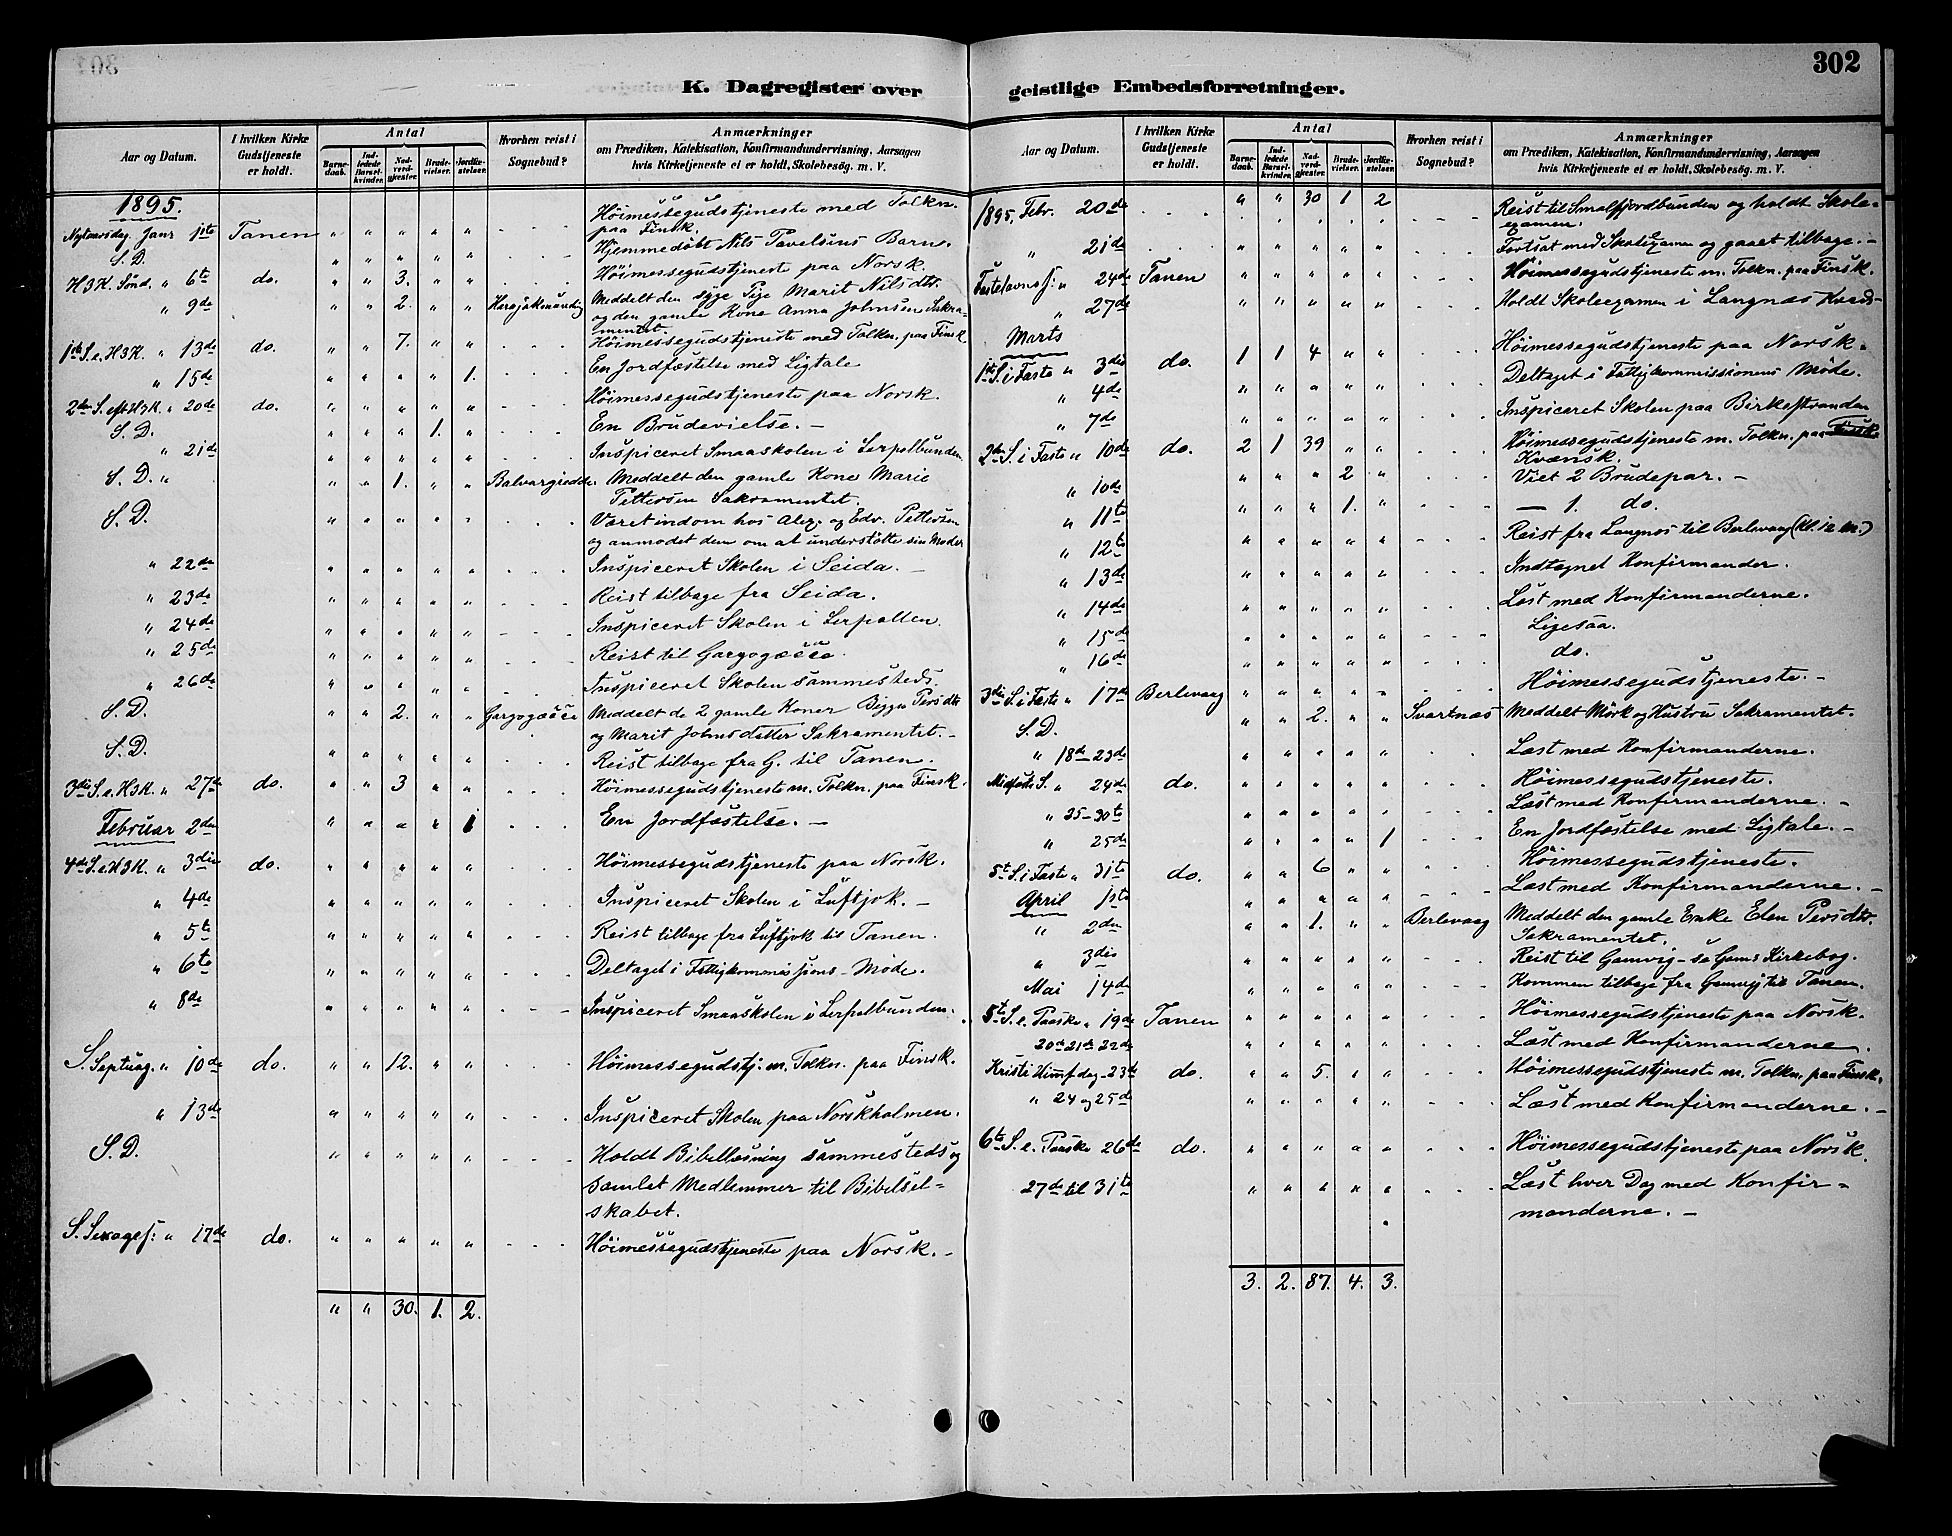 302
K. Dagregister over
geistlige Embedsforretninger.
Aar og Datum.
I hvilken Kirke Gudstjeneste er holdt.
Antal
Barnedaab.
Indledede Barselkvinder.
Nadverdgjester.
Brudevielser.
Jordfæstelser.
Hvorhen reist i Sognebud?
Anmærkninger
om Prædiken, Katekisation, Konfirmandundervisning, Aarsagen
hvis Kirketjeneste ei er holdt, Skolebesøg. m. V.
1895.
Nytaarsdag. Janr 1ste Tanen " " " " " Höimessegudstjeneste med Tolkn. paa Finsk.
S. D. " " " " " Hjemmedöbt Nils Pavelsens Barn.
H3K. Sönd. " 6te do. " " 3. " " Höimessegudstjeneste paa Norsk.
" 9de " " 2. " " Meddelt den syge Pige Marit Nilsdtr.
og den gamle Kone Anna Johnsen Sakra-
mentet.
1ste S. e. H3K. " 13de do. " " 7. " " Höimessegudstjeneste med Tolkn. paa Finsk.
" 15de " " " " 1. En Jordfæstelse med Ligtale
2den S. eft H3K. " 20de do. " " " " " Höimessegudstjeneste paa Norsk.
S. D. " " " 1. " En Brudevielse. —
" 21de " " " " " Inspiceret Smaaskolen i Lerpolbunden
S. D. " " " 1. " " Balvargiedde. Meddelt den gamle Kone Marie
Pettersen Sakramentet.
S. D. " " " " " Været indom hos Alex. og Edv. Pettersen
og anmodet dem om at understötte sin Moder
" 22de " " " " " Inspiceret Skolen i Seida. —
" 23de " " " " " Reist tilbage fra Seida.
" 24de " " " " " Inspiceret Skolen i Lerpollen.
" 25de " " " " " Reist til Gargogæčče.
" 26de " " " " " Inspiceret Skolen sammesteds.
S. D. " " 2. " " Gargogæčče Meddelt de 2 gamle Koner Bigga Persdtr
og Marit Johnsdatter Sakramentet. —
S. D. " " " " " Reist tilbage fra G. til Tanen.
3die S. e. H3K. " 27de do. " " 3 " " Höimessegudstjeneste m. Tolkn. paa Finsk.
Februar 2den " " " " 1 En Jordfæstelse. —
4de S. e. H3K. " 3die do. " " " " " Höimessegudstjeneste paa Norsk.
" 4de " " " " " Inspiceret Skolen i Luftjok. —
" 5te " " " " " Reist tilbage fra Luftjok til Tanen.
" 6te " " " " " Deltaget i Fattigkommissions-Möde.
" 8de " " " " " Inspiceret Smaaskolen i Lerpolbunden.
S. Septuag. " 10de do. " " 12. " " Höimessegudstj. m. Tolkn. paa Finsk.
" 13de " " " " " Inspiceret Skolen paa Norskholmen.
S. D. " " " " " Holdt Bibellæsning sammesteds og
samlet Medlemmer til Bibelsel-
skabet.
S. Sexages: " 17de do. " " " " " Höimessegudstjeneste paa Norsk. —
" " 30. 1. 2.
Aar og Datum.
I hvilken Kirke Gudstjeneste er holdt.
Antal
Barnedaab.
Indledede Barselkvinder.
Nadverdgjester.
Brudevielser.
Jordfæstelser.
Hvorhen reist i Sognebud?
Anmærkninger
om Prædiken, Katekisation, Konfirmandundervisning, Aarsagen
hvis Kirketjeneste ei er holdt, Skolebesøg. m. V.
1895. Febr. 20de " " 30 1 2 Reist til Smalfjordbunden og holdt Skole-
examen.
" 21de " " " " " Fortsat med SkoleExamen og gaaet tilbage. —
Fastelavnss: " 24de Tanen " " " " " Höimessegudstjeneste m. Tolkn. paa Finsk.
" 27de " " " " " Holdt Skoleexamen i Langnæs Kreds
Marts
1ste S. i Faste " 3die do. 1 1 4 " " Höimessegudstjeneste paa Norsk.
" 4de " " " " " Deltaget i Fattigkommissionens Möde.
" 7de " " " " " Inspiceret Skolen paa Birkestranden
2den S. i Faste " 10de do. 2 1 39 " " Höimessegudstjeneste m. Tolkn. paa Finsk
Kvænsk.
" 10de " " " 2 " Viet 2 Brudepar. —
" 11te " " " 1. " — 1. do.
" 12te " " " " " Reist fra Langnes til Berlevaag (Kl. 12 M.)
" 13de " " " " " Indtagnet Konfirmander.
" 14de " " " " " Læst med Konfirmanderne.
" 15de " " " " " Ligesaa.
" 16de " " " " " do.
3die S. i Faste " 17de Berlevaag " " " " " Höimessegudstjeneste. —
S. D. " " 2. " " Svartnæs Meddelt Mörk og Hustru Sakramentet.
" 18de—23de " " " " " Læst med Konfirmanderne.
Midfaste S. " 24de do. " " " " " Höimessegudstjeneste.
" 25—30te " " " " " Læst med Konfirmanderne. —
" 25de " " " " 1 En Jordfæstelse med Ligtale. —
5te S. i Faste " 31te do. " " 6 " " Höimessegudstjeneste.
April 1ste " " " " " Læst med Konfirmanderne. —
" 2den " " 1. " " Berlevaag Meddelt den gamle Enke Elen Persdtr.
Sakramentet.
" 3die " " " " " Reist til Gamvig – se Gamv. Kirkebog.
Mai 14de " " " " " Kommen tilbage fra Gamvig til Tanen.
5te S. e. Paaske " 19de Tanen " " " " " Höimessegudstjeneste paa Norsk.
20de 21de 22de " " " " " Læst med Konfirmanderne.
Kristi Himf.dag - 23de do. " " 5. " " Höimessegudstjeneste m. Tolkn. paa Finsk.
" 24 og 25de " " " " " Læst med Konfirmanderne. —
6te S. e. Paaske 26de do. " " " " " Höimessegudstjeneste paa Norsk.
27de til 31te " " " " " Læst hver Dag med Konfir-
manderne. —
3. 2. 87. 4. 3.